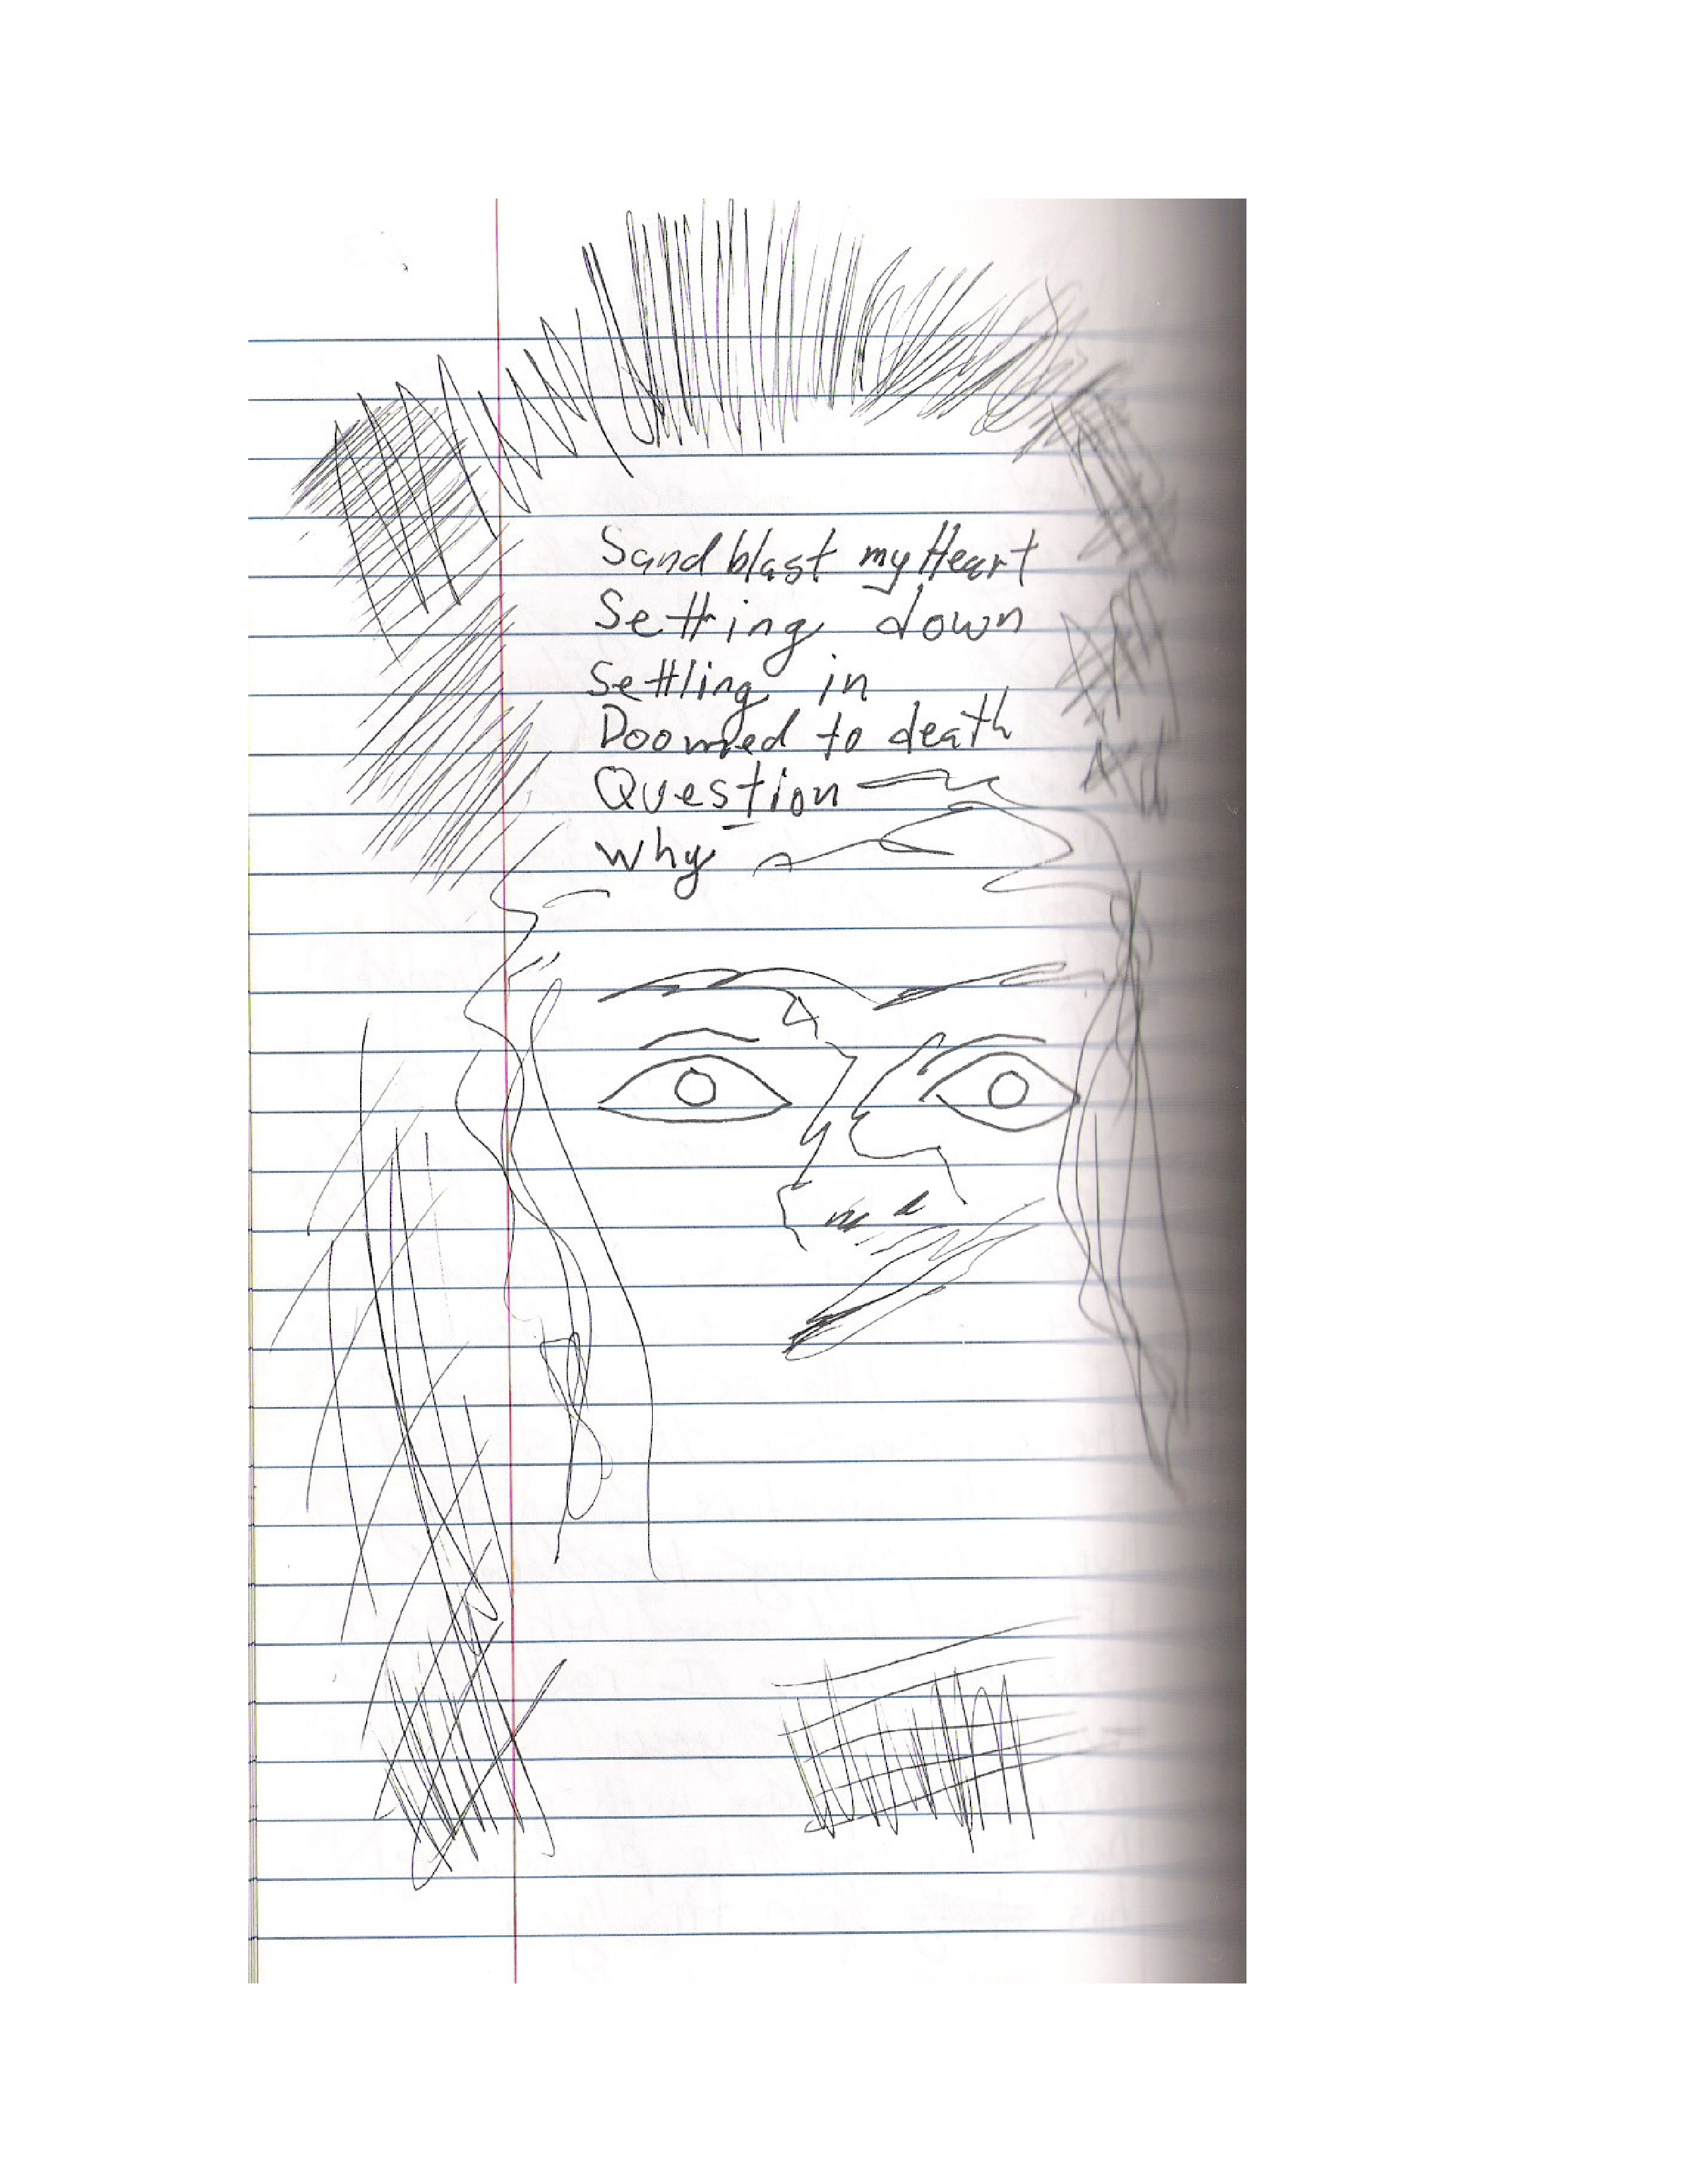 Sandblast my Heart
Setting down
Settling in
Doomed to death
Question
Why